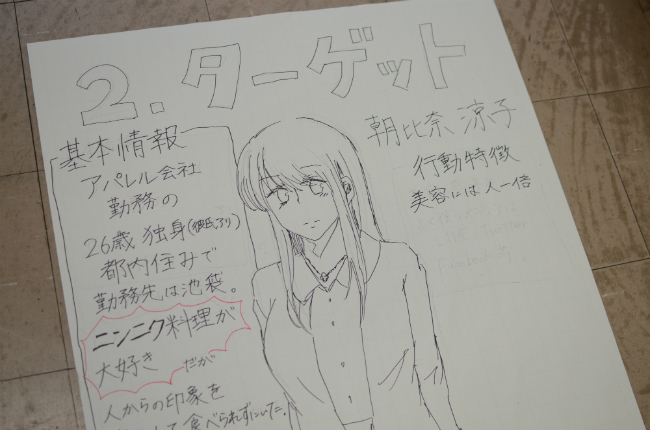 2.ターゲット
基本情報
アパレル会社
勤務の
26歳 独身(彼氏あり)
都内住みで
勤務先は池袋。
ニンニク料理が
大好き だが
人からの印象を
して食べられずにいた。
朝比奈 涼子
行動特徴
美容には人一倍